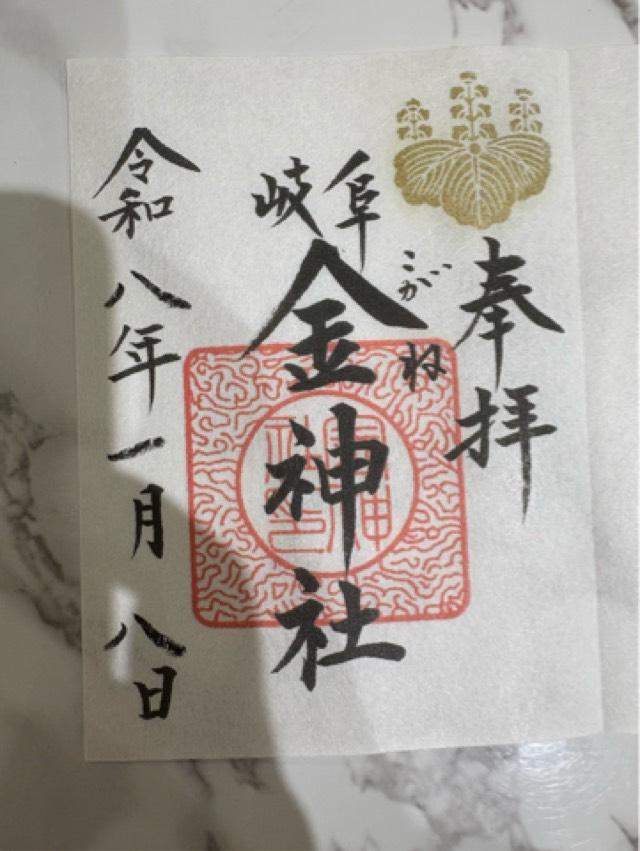 奉拝
岐阜
金神社
こがね
令和八年一月八日